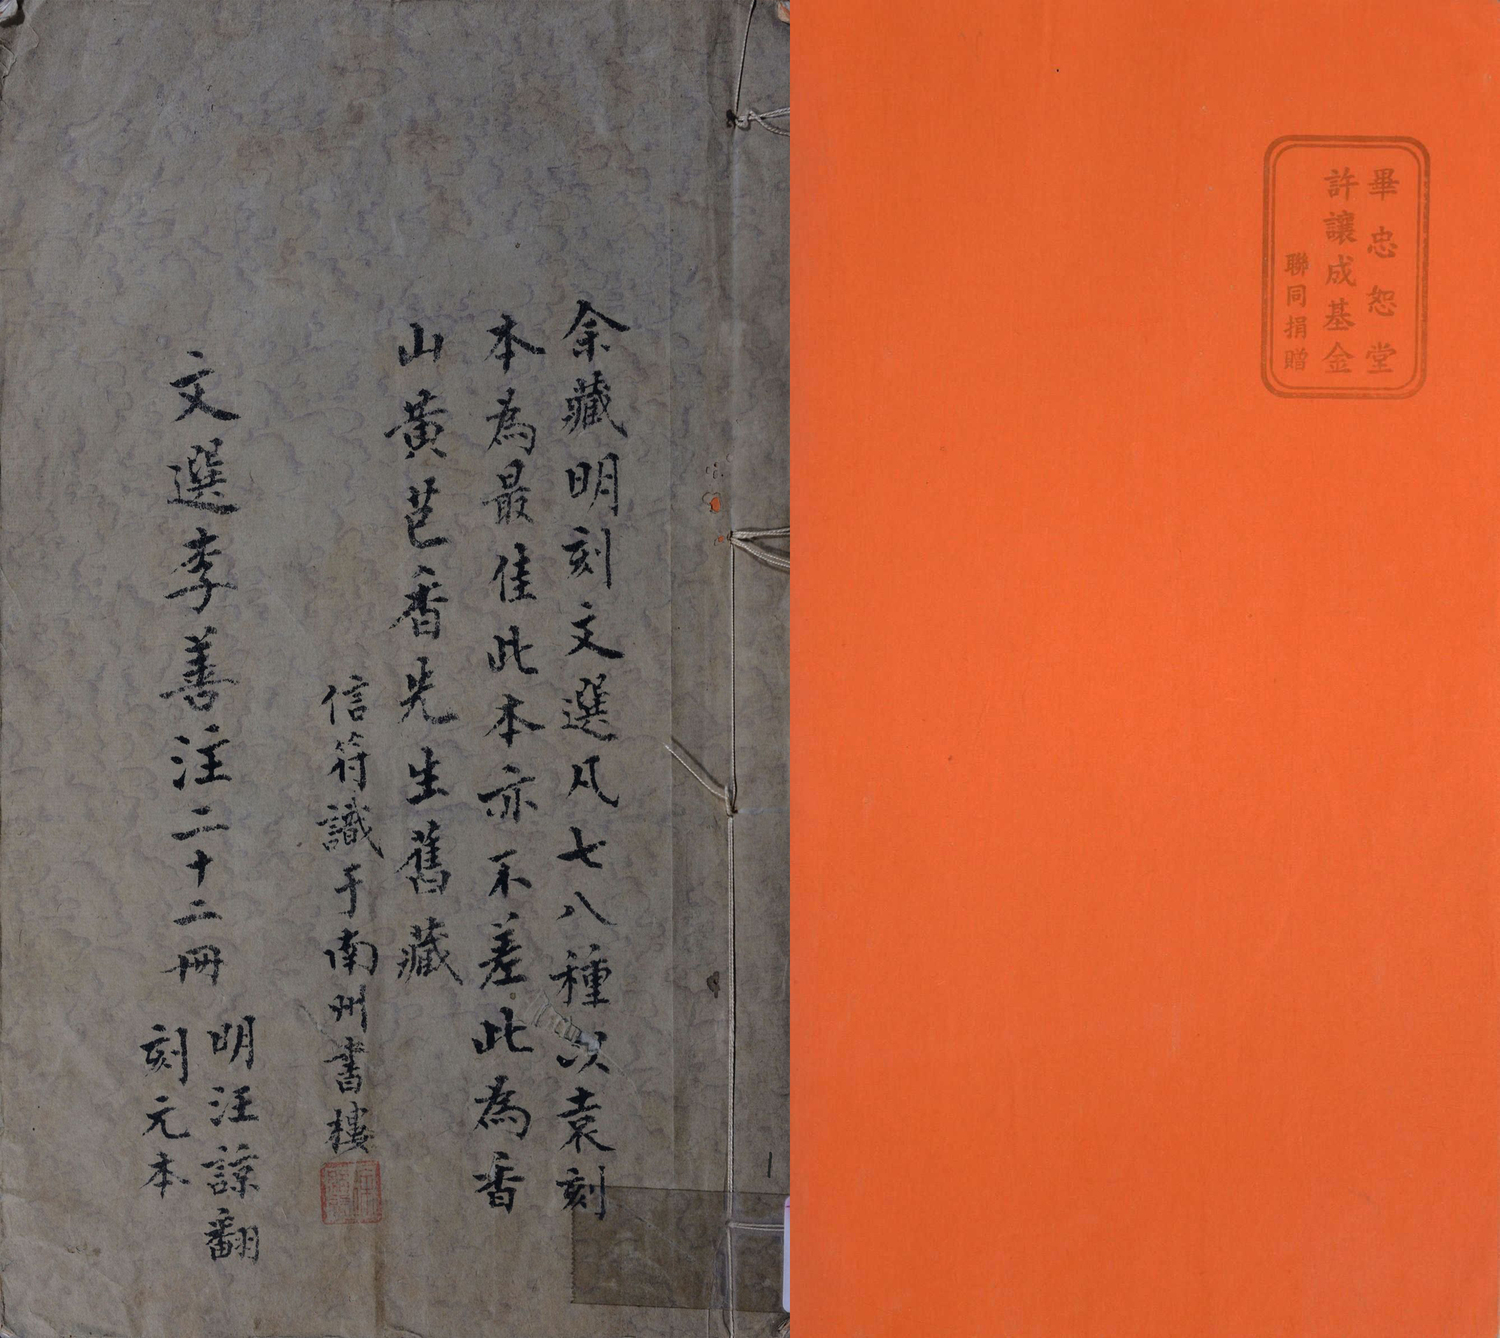 畢忠恕堂
許讓成基金
聯同捐贈
余藏明刻文選凡七八種以袁刻
本為最佳此本亦不差此為香
山黃芑香先生舊藏
信符識于南州書樓
文選李善注二十二冊
明汪諒翻
刻元本